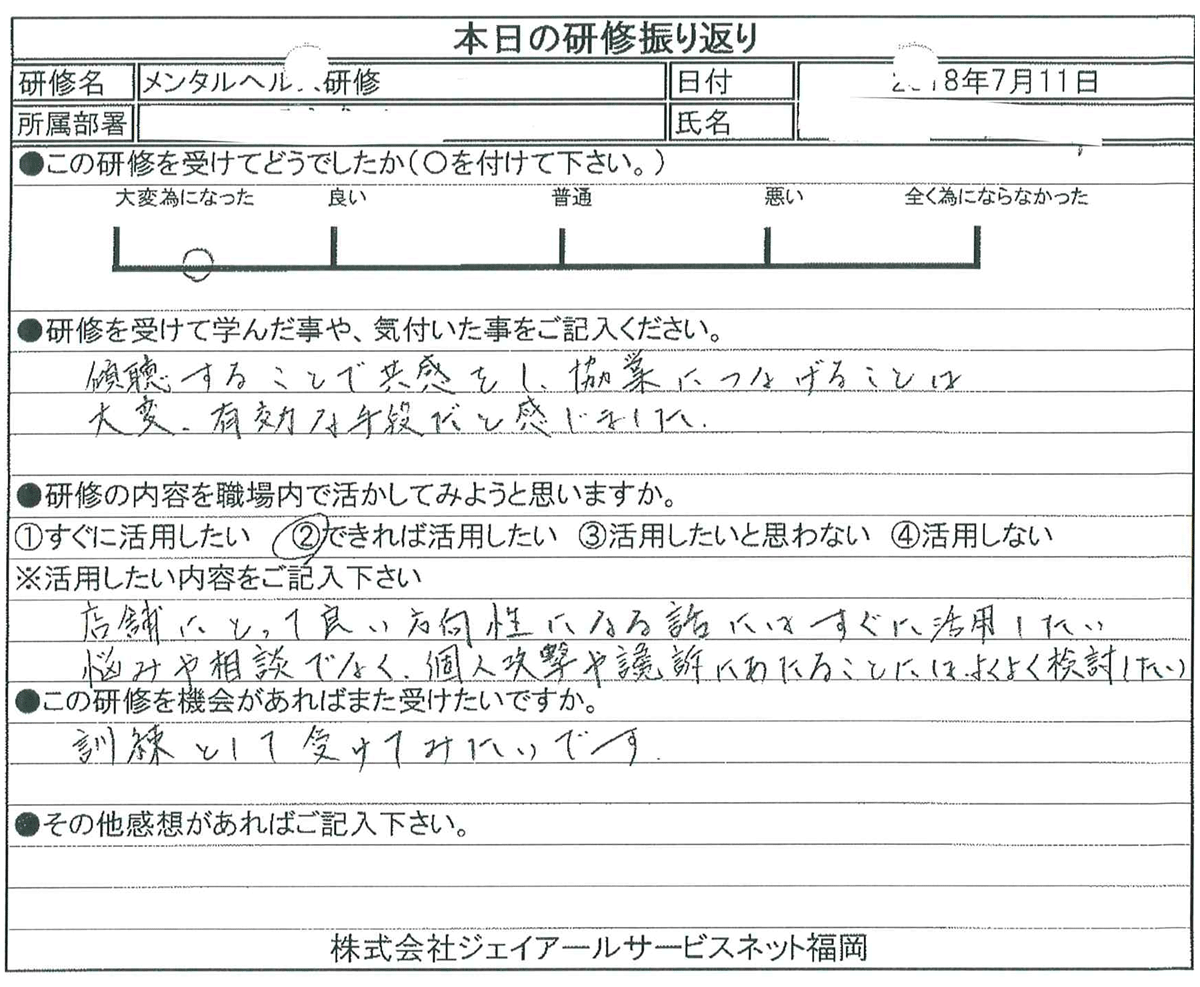 本日の研修振り返り
研修名 メンタルヘル 研修 日付 18年7月11日
所属部署 氏名
●この研修を受けてどうでしたか(○を付けて下さい。)
大変為になった 良い 普通 悪い 全く為にならなかった
●研修を受けて学んだ事や、気付いた事をご記入ください。
傾聴することで共感をし、協業につなげることは
大変、有効な手段だと感じました.
●研修の内容を職場内で活かしてみようと思いますか。
①すぐに活用したい ②できれば活用したい ③活用したいと思わない ④活用しない
※活用したい内容をご記入下さい
店舗にとって良い方向性になる話にはすぐに活用したい
悩みや相談でなく、個人攻撃や讒訴にあたることにはよくよく検討したい
●この研修を機会があればまた受けたいですか。
訓練として受けてみたいです.
●その他感想があればご記入下さい。
株式会社ジェイアールサービスネット福岡